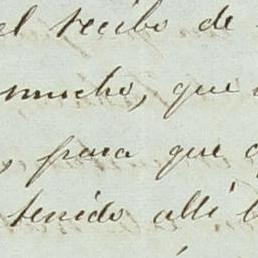 el recibo de
mucho, que
, para que
tenido allí